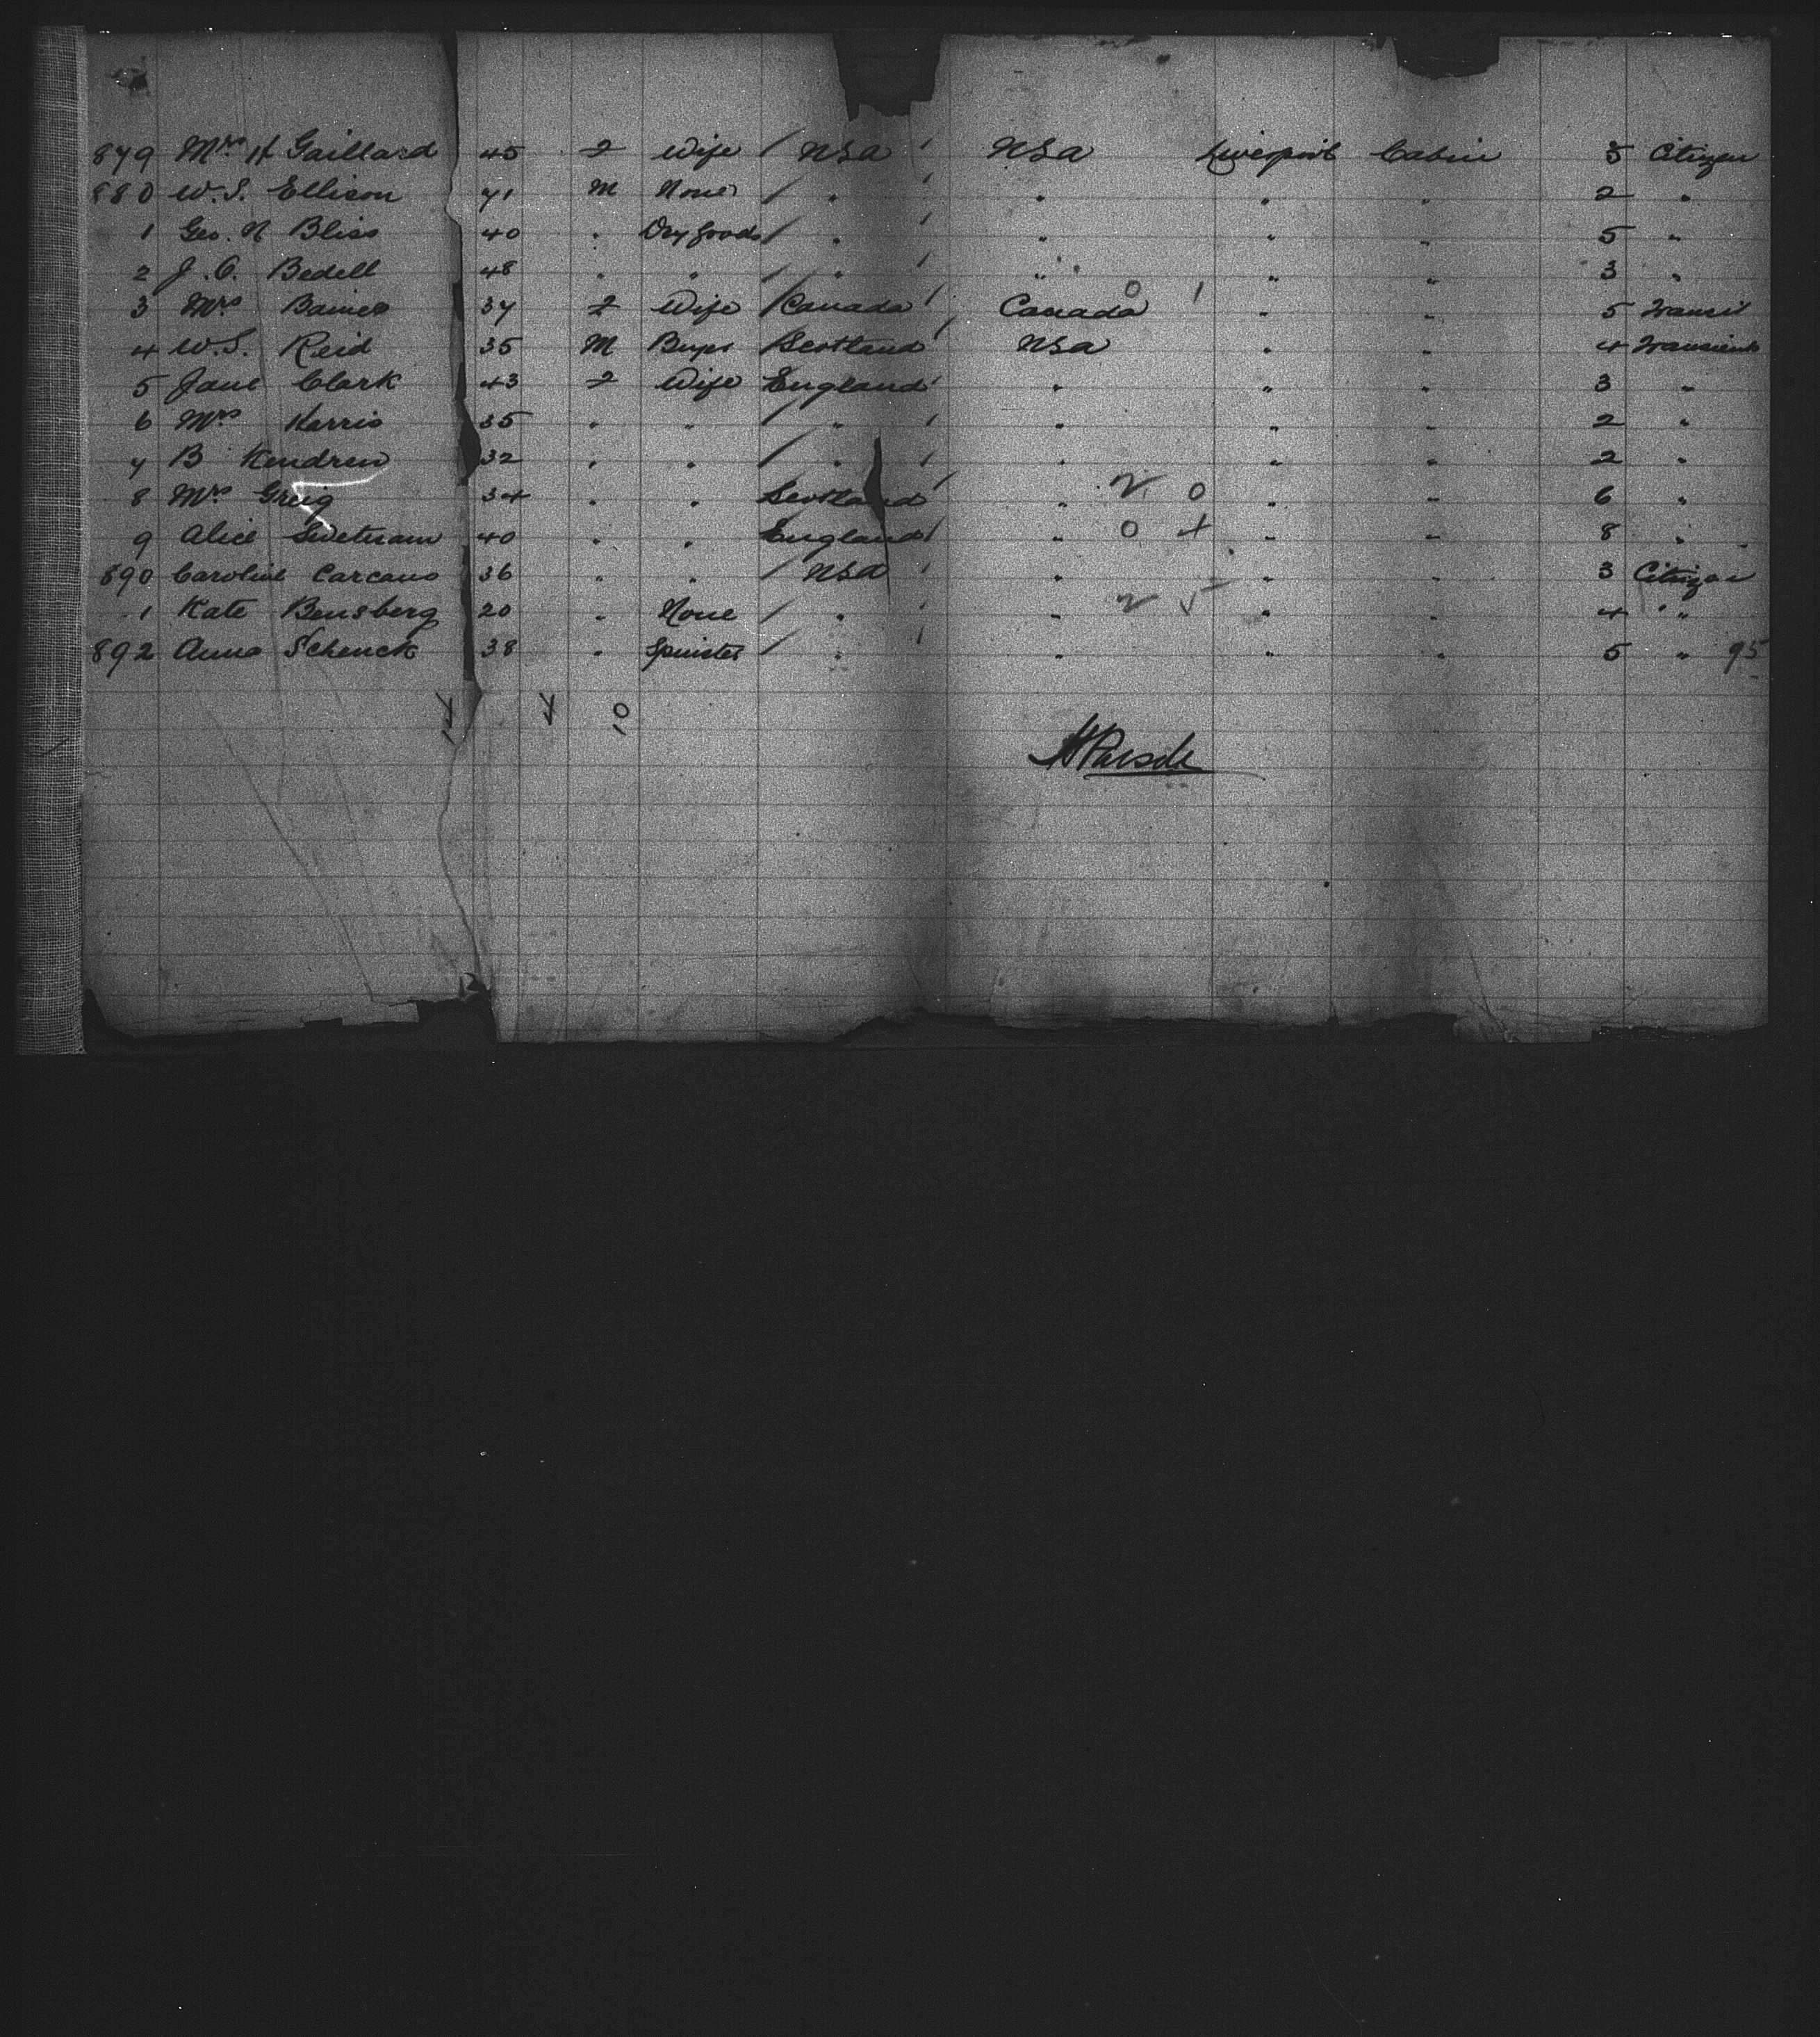 879 Mrs H Gaillard 45 f Wife / USA / USA Liverpool Cabin 5 Citizen
880 W.S. Ellison 71 M None / " / " " " 2 "
1 Geo. N Bliss 40 " Dry goods / " / " " " 5 "
2 J.C. Bedell 48 " " / " / " " " 3 "
3 Mrs Baines 37 f Wife / Canada / Canada 0 1 " " 5 Transit
4 W.S. Reid 35 M Scotland / USA " " 4 Transient
5 Jane Clark 43 f Wife England / " " " 3 "
6 Mrs Harris 35 " " / " / " " " 2 "
7 B Kendren 32 " " / " / " " " 2 "
8 Mrs Greig 34 " " Scotland / " 2 0 " " 6 "
9 Alice 40 " " England / " 0 + " " 8 "
890 Caroline Carcano 36 " " / USA / " " " 3 Citizen
1 Kate Bensberg 20 " None / " / " 2 5 " " 4 "
892 Anna Schenck 38 " Spinster / " / " " " 5 " 95